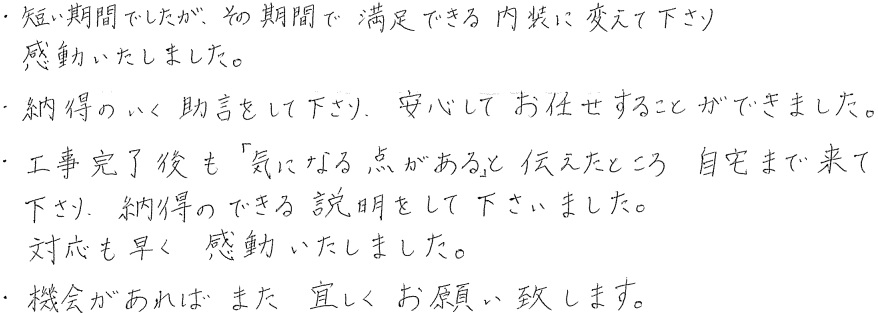 ・短い期間でしたが、その期間で 満足できる 内装に 変えて下さり
感動いたしました。
・納得のいく 助言をして下さり、安心して お任せすることができました。
・工事完了後も「気になる点がある」と 伝えたところ 自宅まで来て
下さり、納得のできる 説明をして下さいました。
対応も早く 感動いたしました。
・機会があれば また 宜しく お願い致します。